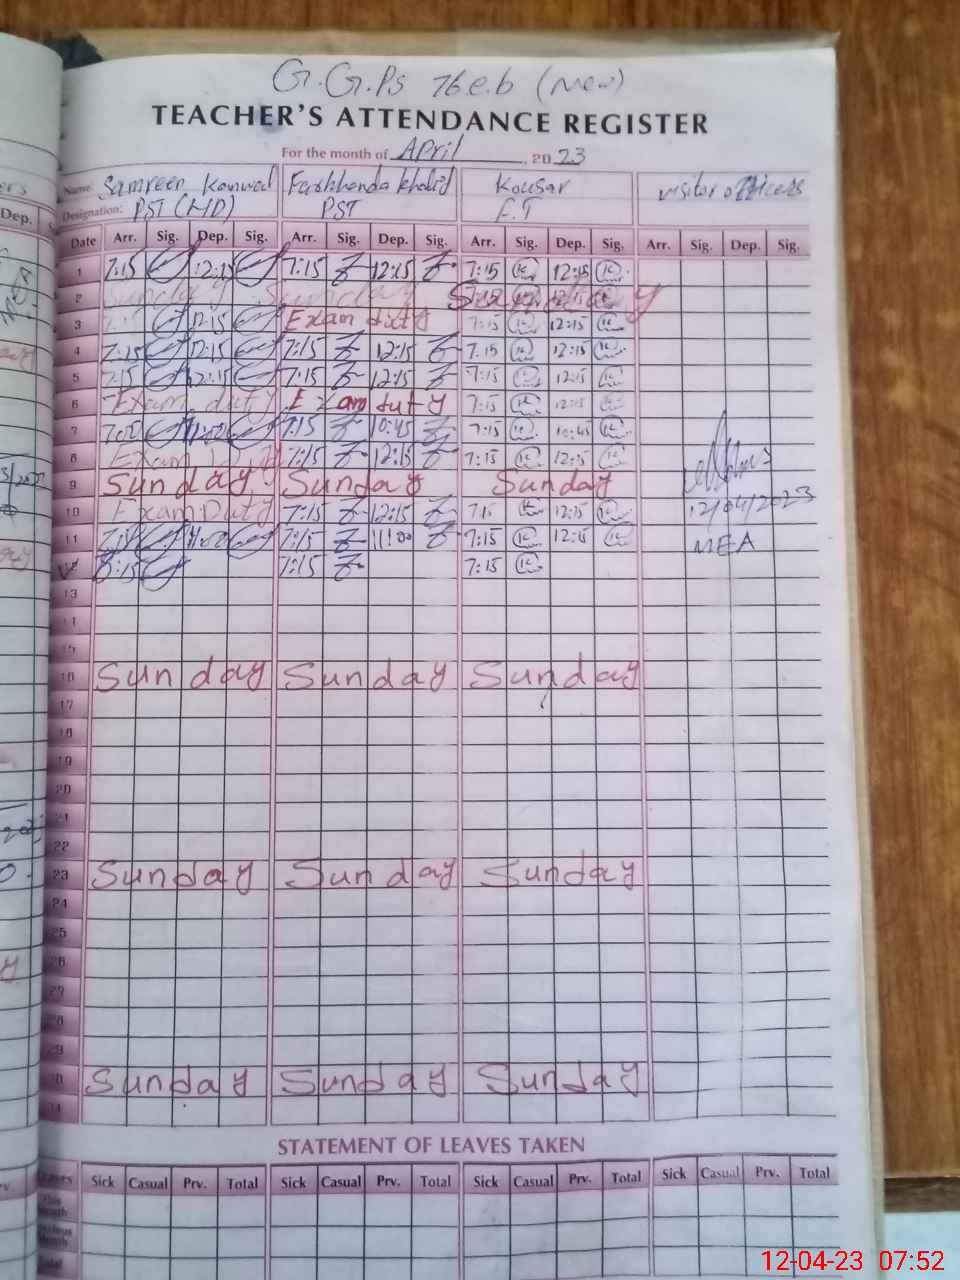 G.G.Ps 76.e.b (New)
TEACHER'S ATTENDANCE REGISTER
For the month of April, 2023
Name: Samreen Kanwal Farkhanda Khalid Kousar visitor officers
Designation: PST (HD) PST E.T
Date Arr. Sig. Dep. Sig. Arr. Sig. Dep. Sig. Arr. Sig. Dep. Sig. Arr. Sig. Dep. Sig.
1 7:15 12:15 7:15 12:15 7:15 12:15
2 Sunday Sunday Sunday
3 12:15 Exam duty 7:15 12:15
4 7:15 12:15 7:15 12:15 7:15 12:15
5 7:15 12:15 7:15 12:15 7:15 12:15
6 Exam duty Exam duty 7:15 12:15
7 7:00 11:00 7:15 10:45 7:15 10:45
8 Exam Duty 7:15 12:15 7:15 12:15
9 Sunday Sunday Sunday
10 Exam Duty 7:15 12:15 7:15 12:15 12/04/2023
11 7:15 7:15 11:00 7:15 12:15 MEA
12 8:15 7:15 7:15
13
15
16 Sunday Sunday Sunday
17
18
19
20
21
22
23 Sunday Sunday Sunday
24
25
26
27
28
29
30 Sunday Sunday Sunday
STATEMENT OF LEAVES TAKEN
Leaves Sick Casual Prv. Total Sick Casual Prv. Total Sick Casual Prv. Total Sick Casual Prv. Total
This Month
Total
12-04-23 07:52